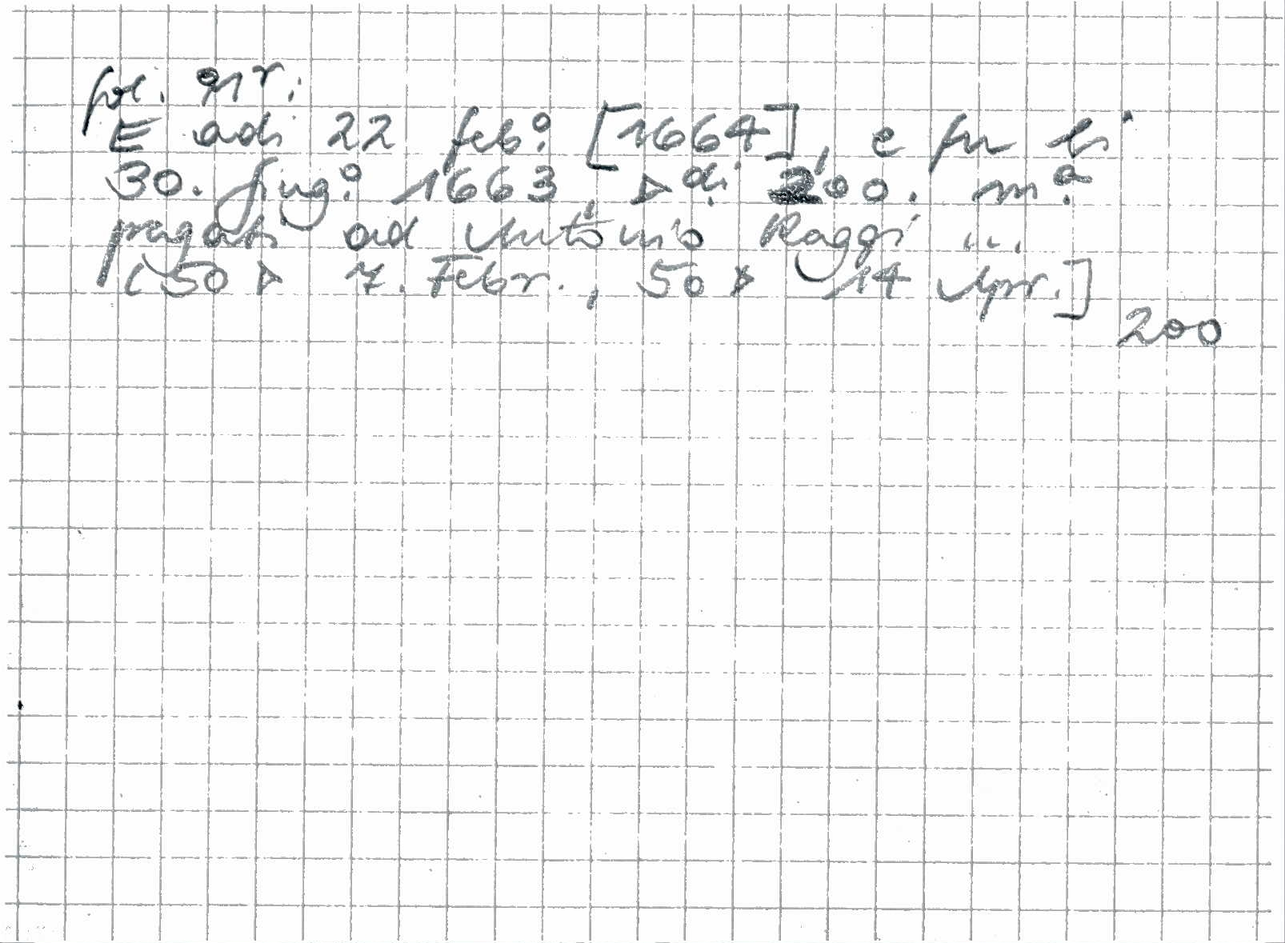 fol. 91r.
E adi 22 feb.º [1664], e fu li
30. Giug.º 1663, ▷di 200. m.ª
pagati ad Antonio Raggi ...
(50 ▷ 7. Febr., 50 ▷ 14 Apr.]
200